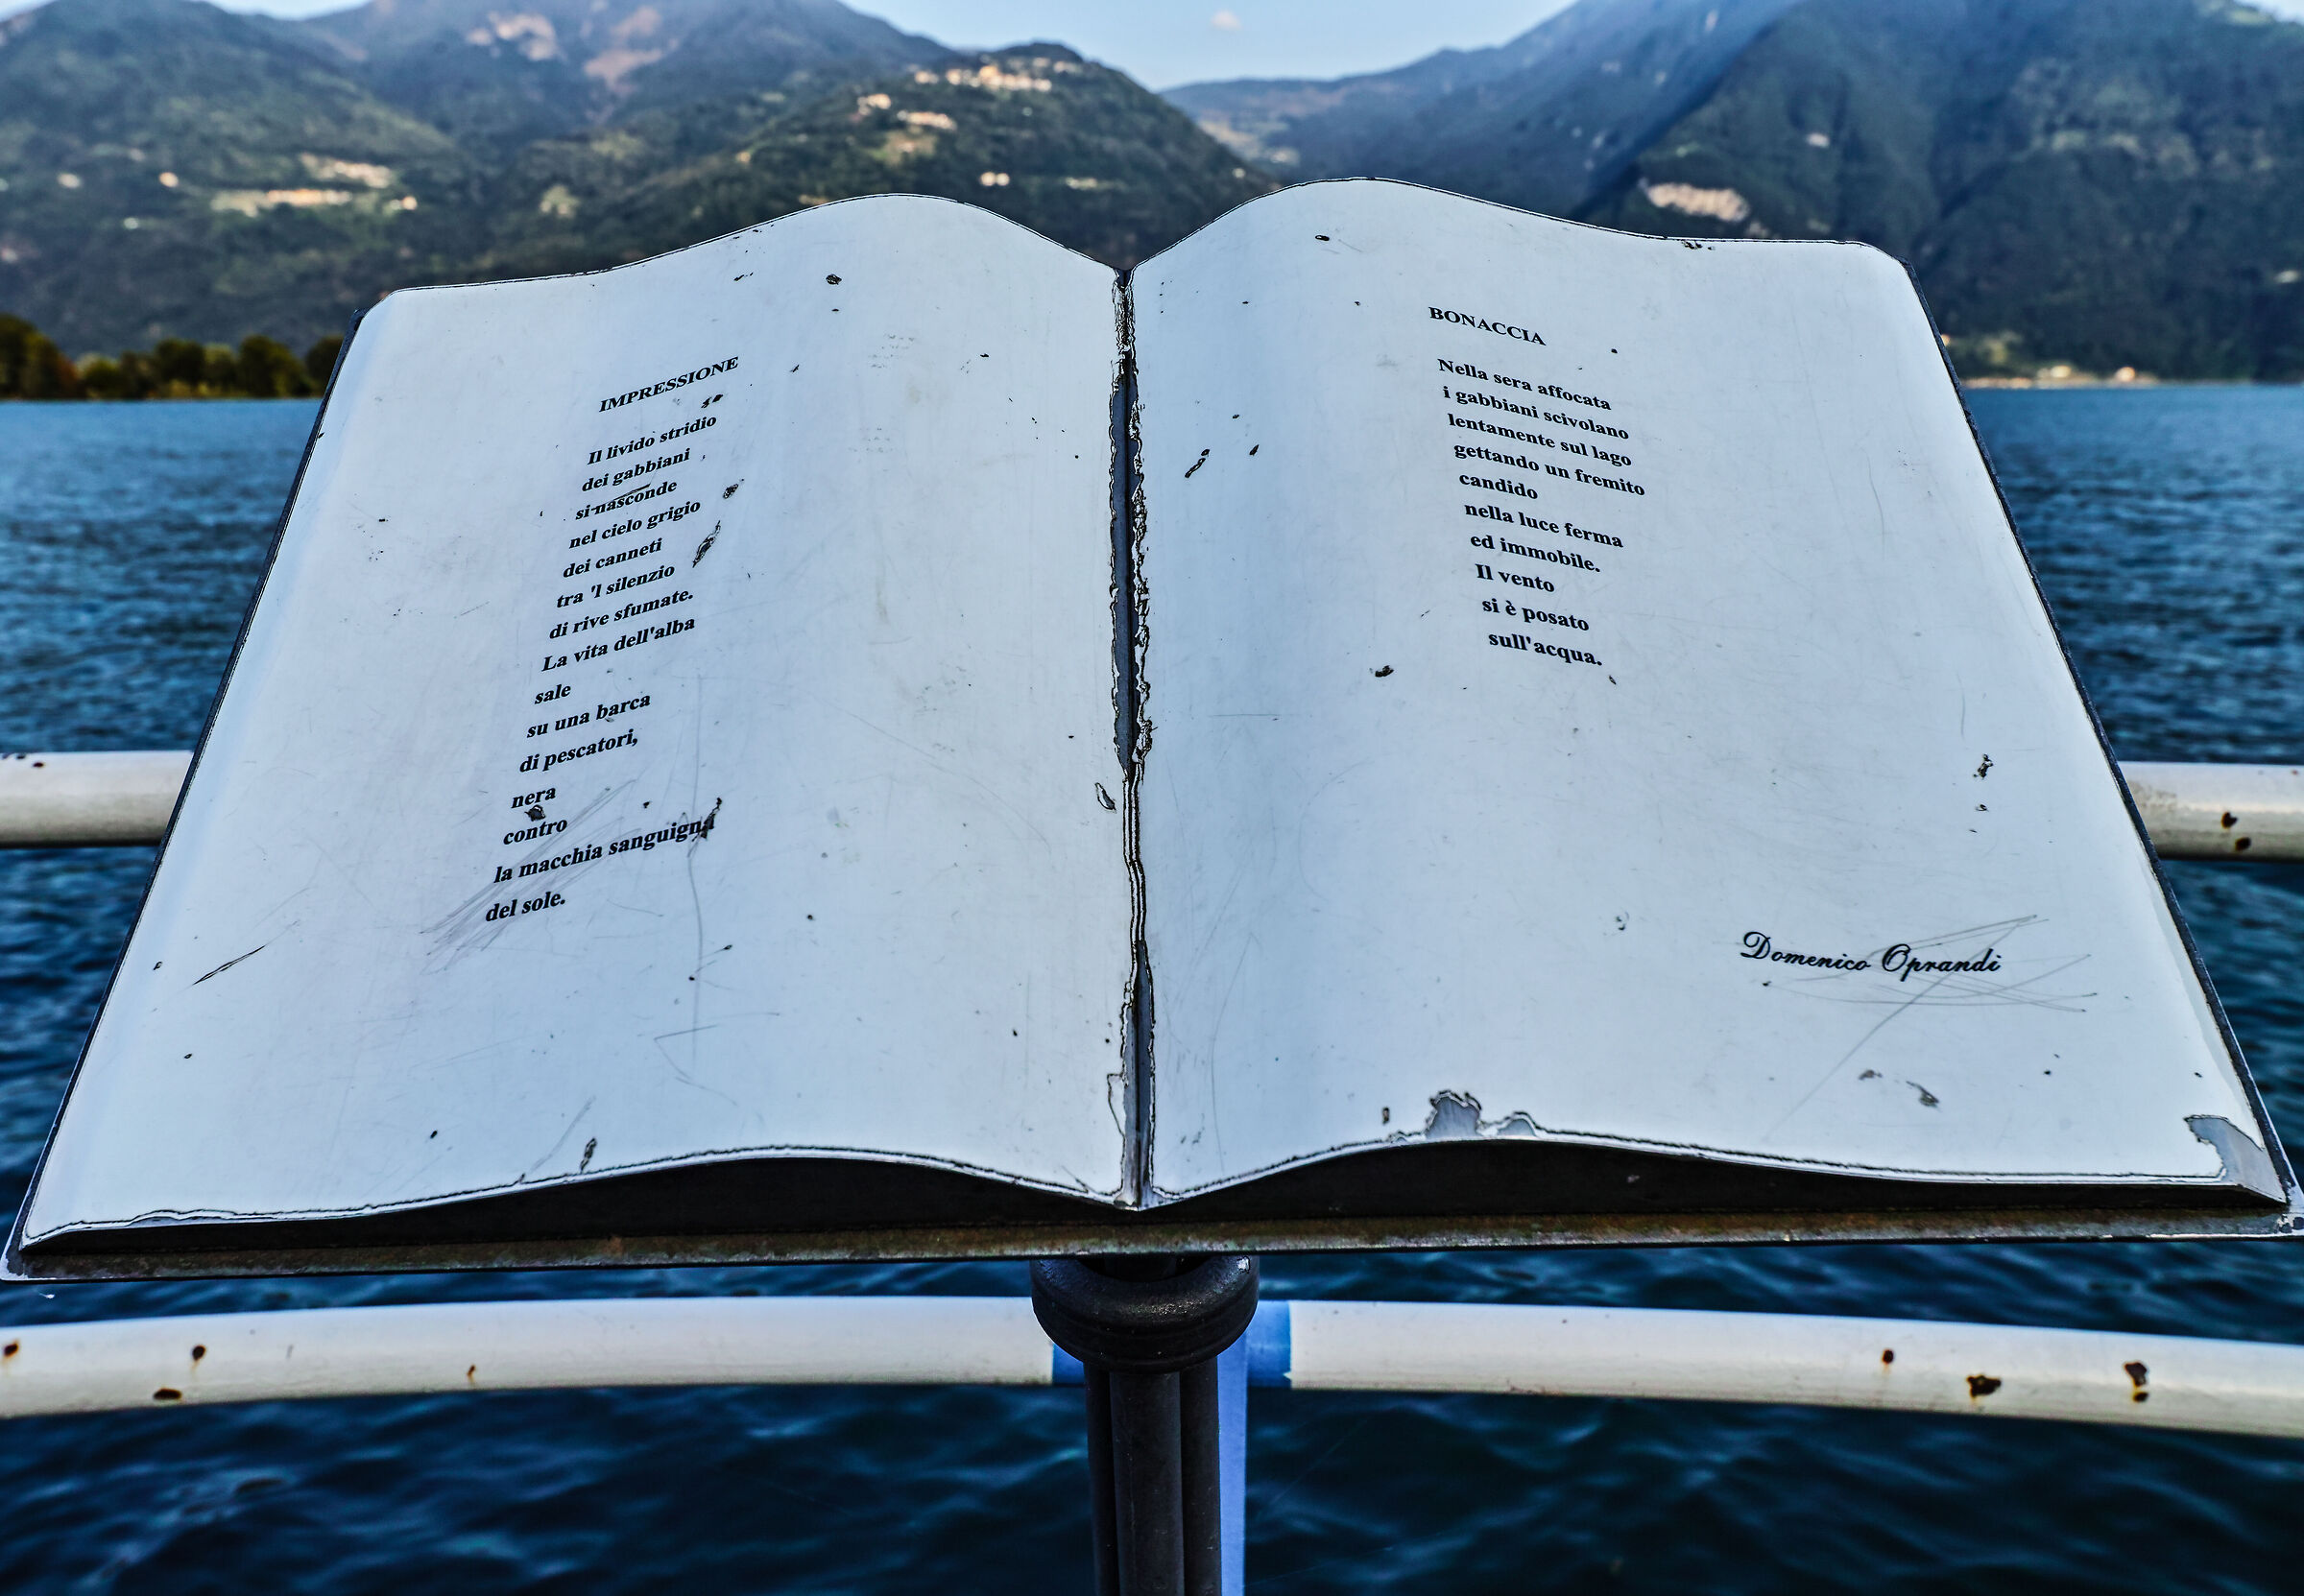 IMPRESSIONE
Il livido stridio
dei gabbiani
si nasconde
nel cielo grigio
dei canneti
tra 'l silenzio
di rive sfumate.
La vita dell'alba
sale
su una barca
di pescatori,
nera
contro
la macchia sanguigna
del sole.
BONACCIA
Nella sera affocata
i gabbiani scivolano
lentamente sul lago
gettando un fremito
candido
nella luce ferma
ed immobile.
Il vento
si è posato
sull'acqua.
Domenico Oprandi